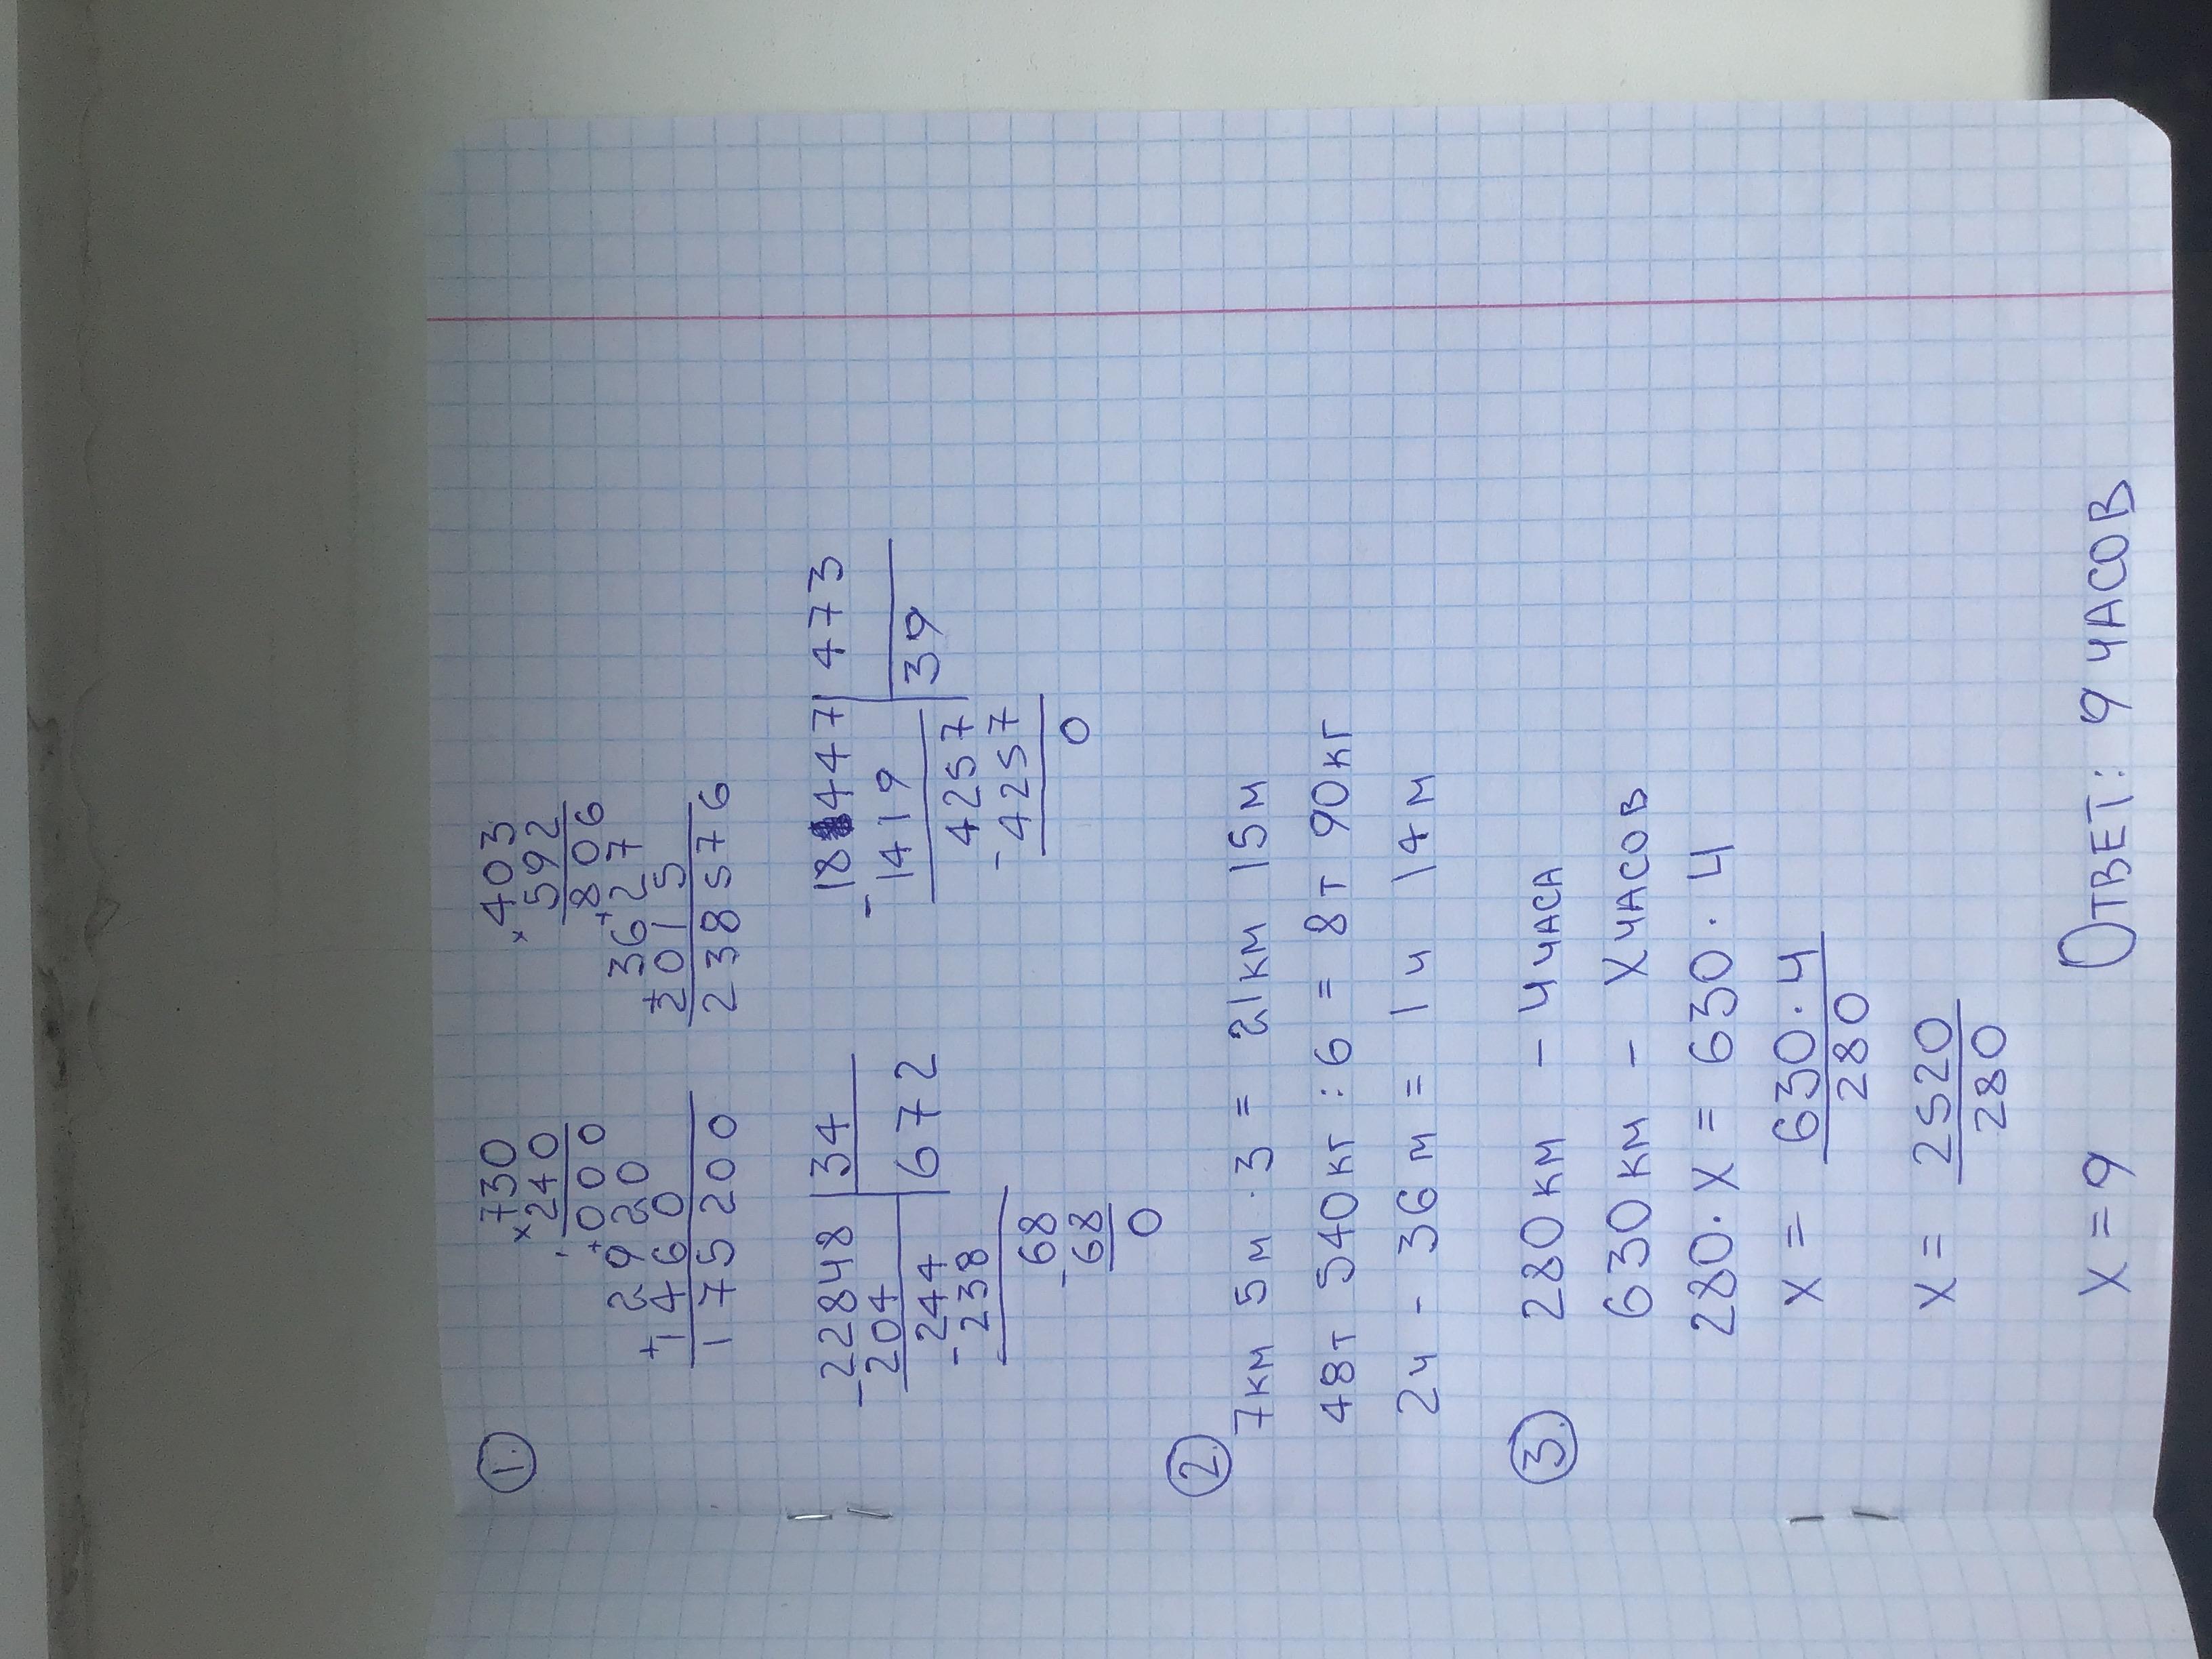 1.
×730
240
+000
2920
+1460
175200
×403
592
+806
3627
+2015
238576
-22848 | 34
204 | 672
-244
-238
68
-68
0
-18447 | 473
1419 | 39
4257
-4257
0
2. 7км 5м · 3 = 21км 15м
48т 540кг : 6 = 8т 90кг
2ч - 36м = 1ч 14м
3. 280км - 4 часа
630км - X часов
280 · X = 630 · 4
X = 630 · 4 / 280
X = 2520 / 280
X = 9 Ответ: 9 часов